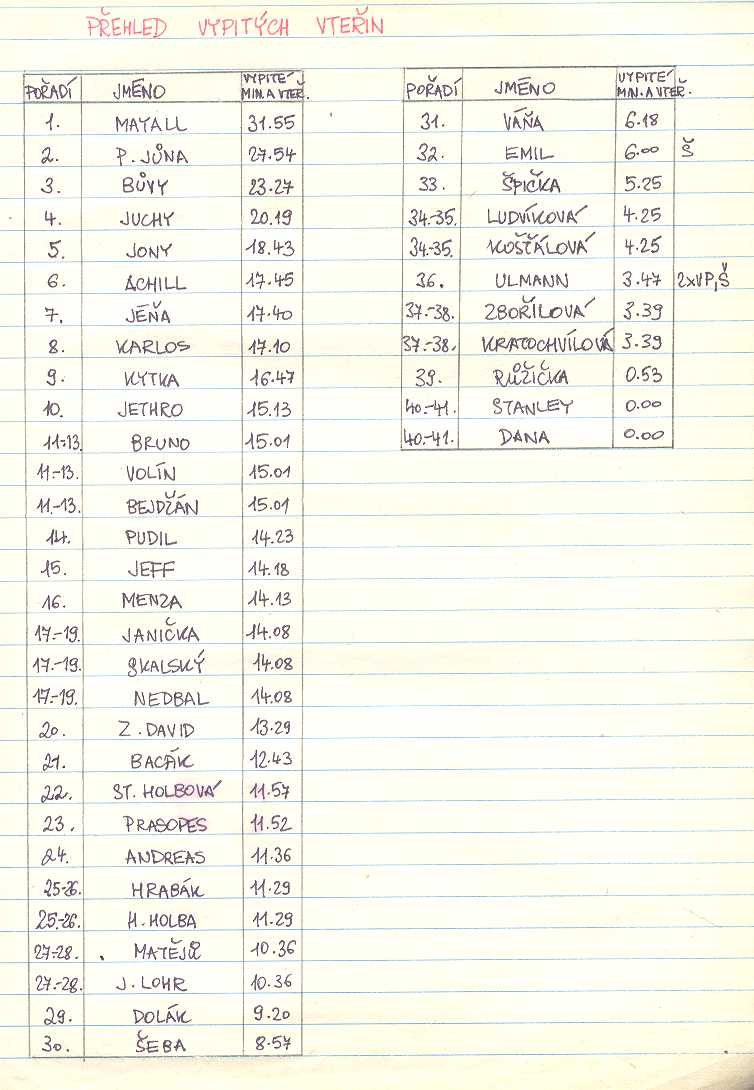 PŘEHLED VYPITÝCH VTEŘIN
POŘADÍ JMÉNO VYPITÉ MIN. A VTEŘ.
1. MAYALL 31.55
2. P. JŮNA 27.54
3. BŮVY 23.27
4. JUCHY 20.19
5. JONY 18.43
6. ACHILL 17.45
7. JÉŇA 17.40
8. KARLOS 17.10
9. KYTKA 16.47
10. JETHRO 15.13
11-13. BRUNO 15.01
11.-13. VOLÍN 15.01
11.-13. BEJDŽÁN 15.01
14. PUDIL 14.23
15. JEFF 14.18
16. MENZA 14.13
17.-19. JANIČKA 14.08
17.-19. SKALSKÝ 14.08
17.-19. NEDBAL 14.08
20. Z. DAVID 13.29
21. BACÁK 12.43
22. ST. HOLBOVÁ 11.57
23. PRASOPES 11.52
24. ANDREAS 11.36
25-26. HRABÁK 11.29
25.-26. H. HOLBA 11.29
27.-28. MATĚJŮ 10.36
27.-28. J. LOHR 10.36
29. DOLÁK 9.20
30. ŠEBA 8.57
POŘADÍ JMÉNO VYPITÉ MIN. A VTEŘ.
31. VÁŇA 6.18
32. EMIL 6.00 Š
33. ŠPIČKA 5.25
34.-35. LUDVÍKOVÁ 4.25
34.-35. KOŠŤÁLOVÁ 4.25
36. ULMANN 3.47 2xVP,Š
37.-38. ZBOŘILOVÁ 3.39
37.-38. KRATOCHVÍLOVÁ 3.39
39. RŮŽIČKA 0.53
40.-41. STANLEY 0.00
40.-41. DANA 0.00